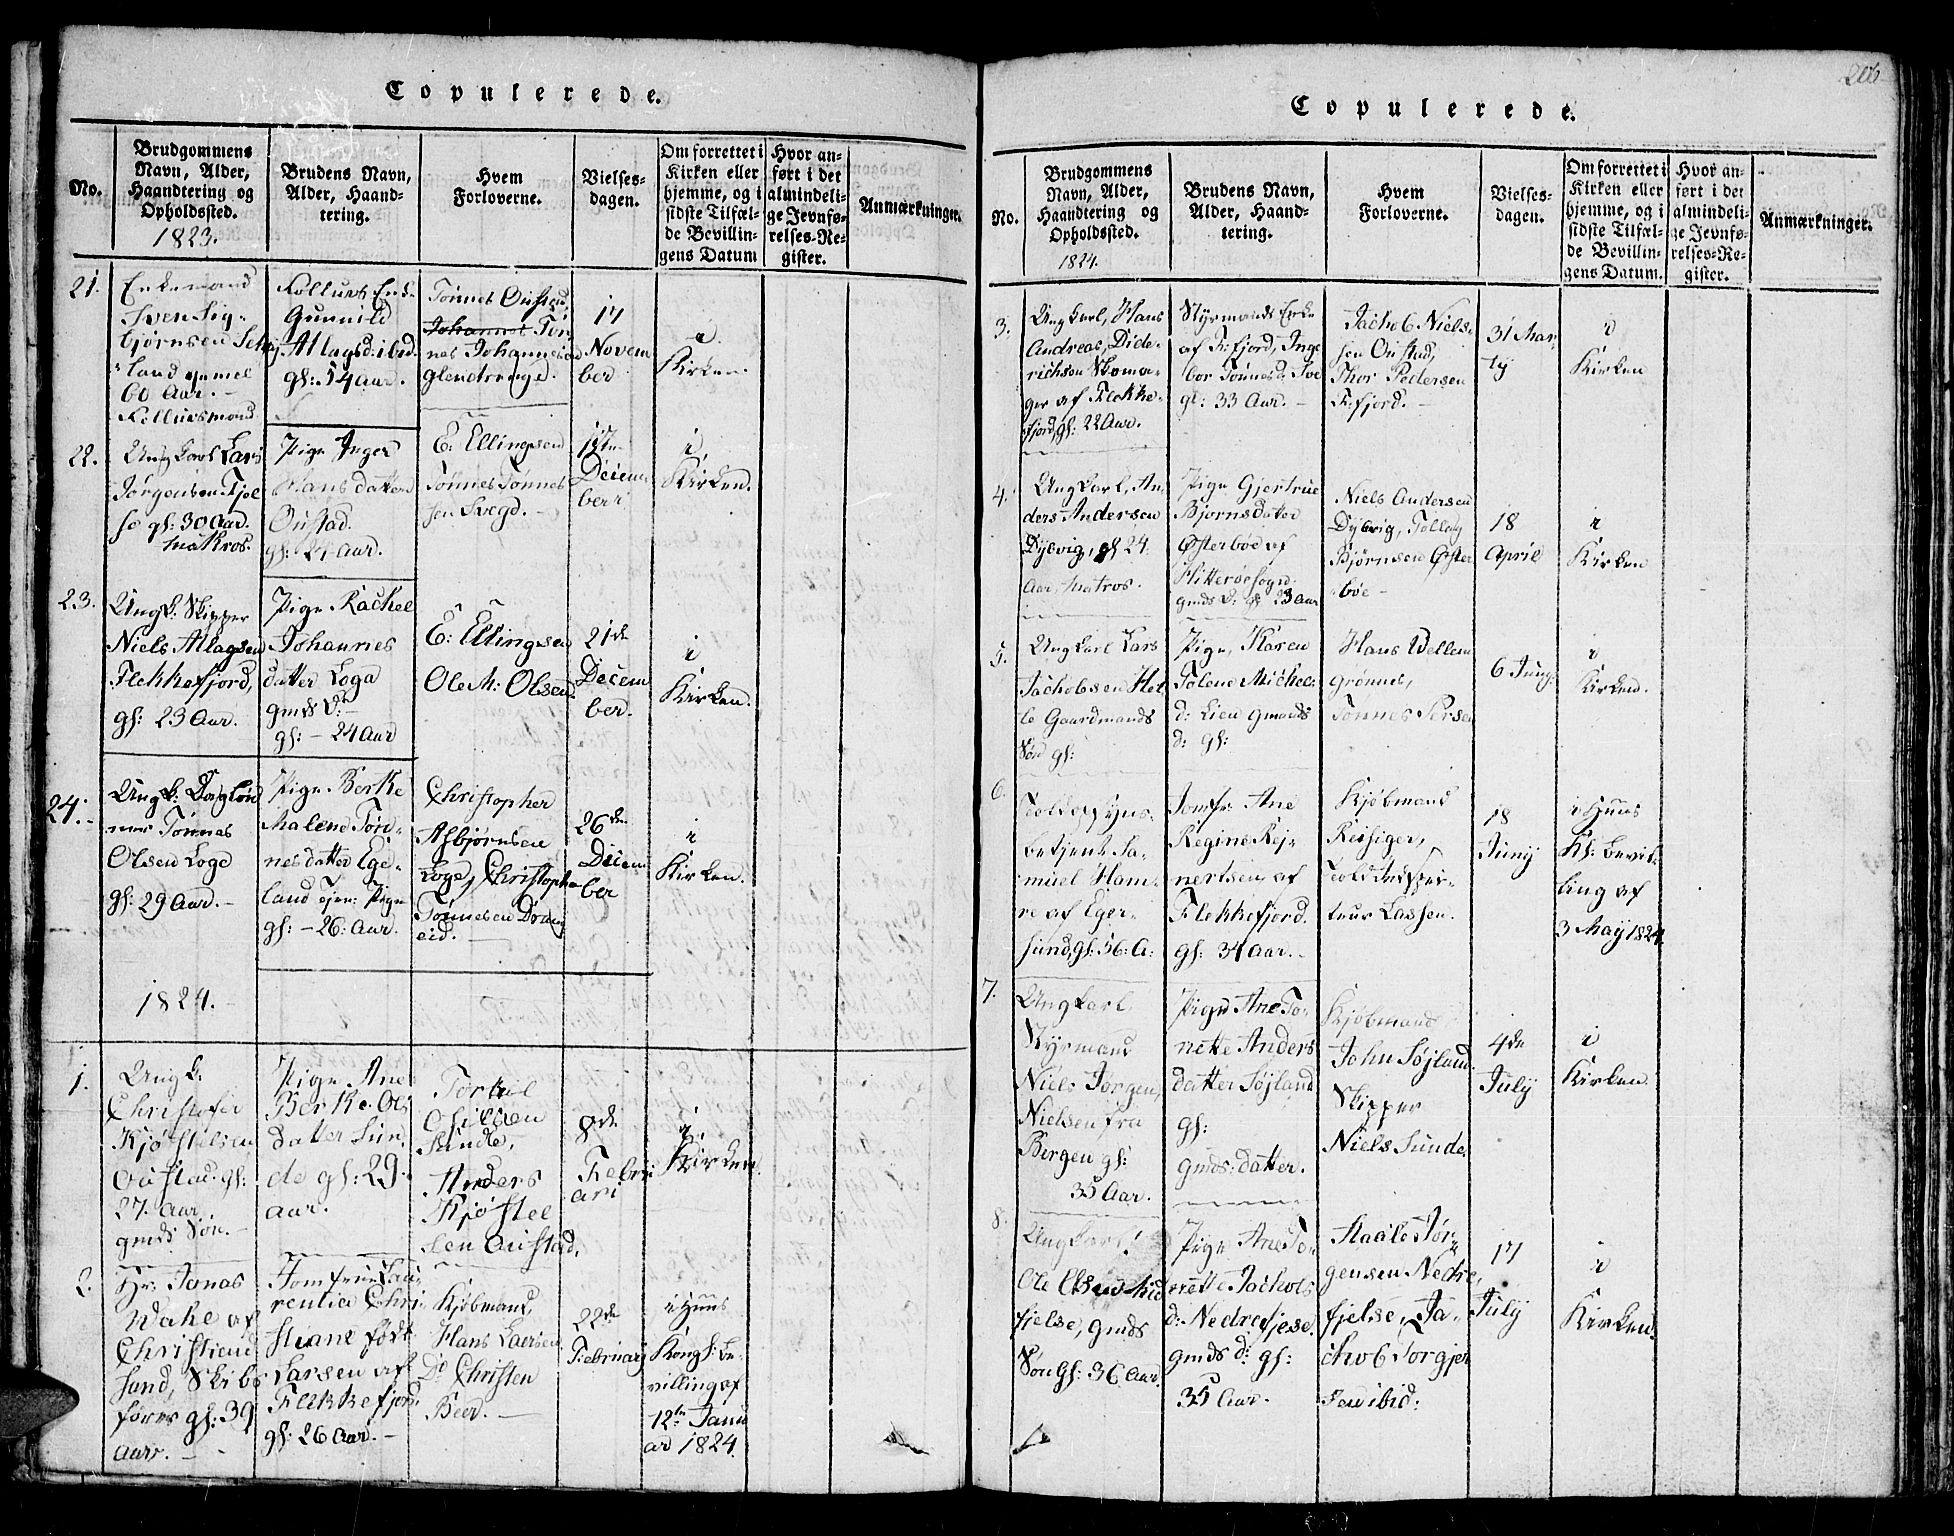 Copulerede.
No.
Brudgommens
Navn, Alder,
Haandtering og
Opholdssted.
1823.
Brudens Navn,
Alder, Haand-
tering.
Hvem
Forloverne.
Vielses-
dagen.
Om forrettet i
Kirken eller
hjemme, og i
sidste Tilfæl-
de Bevillin-
gens Datum
Hvor an-
ført i det
almindeli-
ge Jevnfø-
relses-Re-
gister.
Anmærkninger.
21.
Enkemand
Sven Sig-
bjørnsen
land gammel
60 Aar.
Gunnild
Atlagsd: ibid.
gl: 54 Aar.
Tønnes Oustad
Johannes Tøn
nes Johannesen
17
Novem
ber
i
Kirken.
22.
Ungkarl Lars
Jørgensen Fjel
se gl: 30 Aar.
Matros.
Pige Inger
Hansdatter
Oustad.
gl: 27 Aar.
E: Ellingsen
Tønnes Tønnes
sen Svegd.
Decem
ber
i
Kirken.
23.
Ungk: Skipper
Niels Atlagsen
Flekkefjord,
gl: 23 Aar.
Pige Rachel
Johannes
datter Loga
gmds D:
gl: 24 Aar
E: Ellingsen
Ole M: Olsen
21de
Decem
ber.
i
Kirken.
24.
Ungk: Dagløn
ner Tønnes
Olsen Loge
gl: 29 Aar.
Pige Berthe
Malene Tøn-
nesdatter Ege-
land tjen: Pige
gl: 26: Aar.
Christopher
Asbjørnsen
Loge, Christopher
Tønnesen Drang
eid.
26de
Decem
ber
i
Kirken.
1824.
1.
Ungk.
Christofer
Kjøstelsen
Oustad gl:
27. Aar
gmds Søn.
Pige Ane
Berthe Ols
datter Sun
de gl: 29.
aar.
Torkel
Osulsen
Sunde,
Anders
Kjøstel
sen Oustad.
8de
Febru
ari
i
Kirken.
2.
Hr: Jonas
Wahe af
Christiend
sand, Skibs
fører gl: 39
aar.
Jomfrue Lau
rentia Chri
stiane født
Larsen af
Flekkefjord
gl: 26 Aar.
Kjøbmand,
Hans Laersen
Do Christen
Beer.
22de
Februarj
i Huus
Kongl: Be
villing af
12te Janu
ar 1824
Copulerede.
206
No.
Brudgommens
Navn, Alder,
Haandtering og
Opholdssted.
1824.
Brudens Navn,
Alder, Haand-
tering.
Hvem
Forloverne.
Vielses-
dagen.
Om forrettet i
Kirken eller
hjemme, og i
sidste Tilfæl-
de Bevillin-
gens Datum.
Hvor an-
ført i det
almindeli-
ge Jevnfø-
relses-Re-
gister.
Anmærkninger.
3.
Ungkarl, Hans
Andreas, Dide-
richsen Skoma-
ger af Flekke-
fjord, gl: 22 Aar.
Styrmands Enke
af F:fjord, Inge
bor Tønnesd:
gl: 33 Aar.
Jachob Niels-
sen Oustad,
Thor Pedersen
F:fjord.
31 Mar
ty
i
Kirken
4.
Ungkarl, An
ders Andersen
Dybvig, gl 24
Aar, Matros.
Pige Gjertrue
Bjørnsdatter
Østerbøe af
Hitterøe Sogn
gmds D: gl 23 Aar
Niels Andersen
Dybvig, Tolleg
Bjørnsen Øster
bøe
18
April
i
Kirken
5.
Ungkarl Lars
Jachobsen Hel
le Gaardmands
Søn gl:
Pige, Karen
Talene Michel
d: Lien gmands
d: gl:
Hans Wellem
Grønnes,
Tønnes Persen
6 Juny
i
Kirken.
6.
Toldopsyns-
betjent Sa-
muel Ham-
re af Eger-
sund, gl: 56: A:
Jomfr: Ane
Regine Rej-
nertsen, af
Flekkefjord.
gl: 34 Aar.
Kjøbmand
Reisiger,
Toldinspec-
teur Lassen.
18
Juny
i Huus
Kl: Bevil-
ling af
3 May 1824.
7.
Ungkarl
Styrmand
Niels Jørgen
Nielsen fra
Bergen gl:
35 Aar.
Pige Ane To-
nette Anders
datter Søyland
gl:
gmds: datter.
Kjøbmand
John Søyland
Skipper
Niels Sunde.
4de
July
i
Kirken.
8.
Ungkarl
Ole Olsen Mid
fjelse, gmds
Søn gl: 36 Aar.
Pige Ane To
rette Jachobs
d: Nedrefjelse.
gmds d: gl:
35 Aar.
Staale Jør-
gensen Nedre
fjelse, Ja-
chob Torgjer
sen ibid:
17
July
i
Kirken.